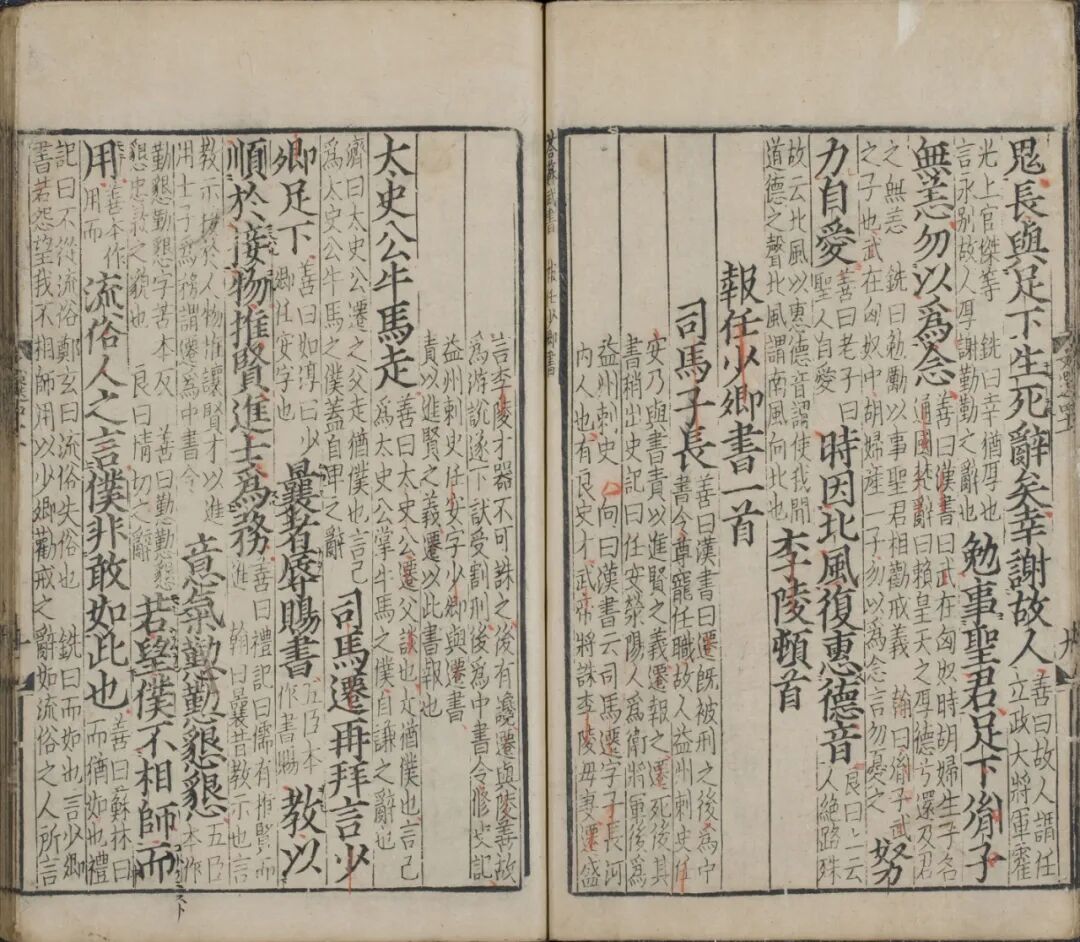 鬼長與足下生死辭矣幸謝故人善曰故人謂任立政大將軍霍
光上官桀等 銑曰幸猶厚也言永別故人厚謝勤勤之辭也勉事聖君足下胤子
無恙勿以爲念善曰漢書曰武在匈奴時胡婦生子名通國楚辭曰賴皇天之厚德兮還及君
之無恙 銑曰勉勵以事聖君相勸戒義 翰曰胤子武之子也武在匈奴中胡婦産一子勿以爲念言勿憂之努
力自愛善曰老子曰聖人自愛時因北風復惠德音良曰上云人絶路殊
故云北風以惠德音謂使我聞道德之聲北風謂南風向北也李陵頓首
報任少卿書一首
司馬子長善曰漢書曰遷旣被刑之後爲中書令尊寵任職故人益州刺史任
安乃與書責以進賢之義遷報之遷死後其書稍出史記曰任安滎陽人爲衛將軍後爲
益州刺史 向曰漢書云司馬遷字子長河内人也有良史才武帝將誅李陵母妻遷盛
言李陵才器不可誅之後有讒遷與陵善故爲游說遂下獄受割刑後爲中書令修史記
益州刺史任安字少卿與遷書責以進賢之義遷以此書報也
太史公牛馬走善曰太史公遷父談也走猶僕也言己爲太史公掌牛馬之僕自謙之辭也
濟曰太史公遷之父走猶僕也言己爲太史公牛馬之僕蓋自卑之辭司馬遷再拜言少
卿足下善曰如淳曰少卿任安字也曩者辱賜書五臣本作書賜教以
順於接物推賢進士爲務善曰禮記曰儒有推賢而進 翰曰曩昔教示也言
教示接於人物推讓賢才以進用士子爲務謂遷爲中書令意氣懃懃懇懇五臣本作
勤懇懃懇字苦本反 善曰懃懃懇懇忠款之貌也 良曰情切之辭若望僕不相師而
用善本作用而流俗人之言僕非敢如此也善曰蘇林曰而猶如也禮
記曰不從流俗鄭玄曰流俗失俗也 銑曰而如也言少卿書若怨望我不相師用以少卿勸戒之辭如流俗之人所言